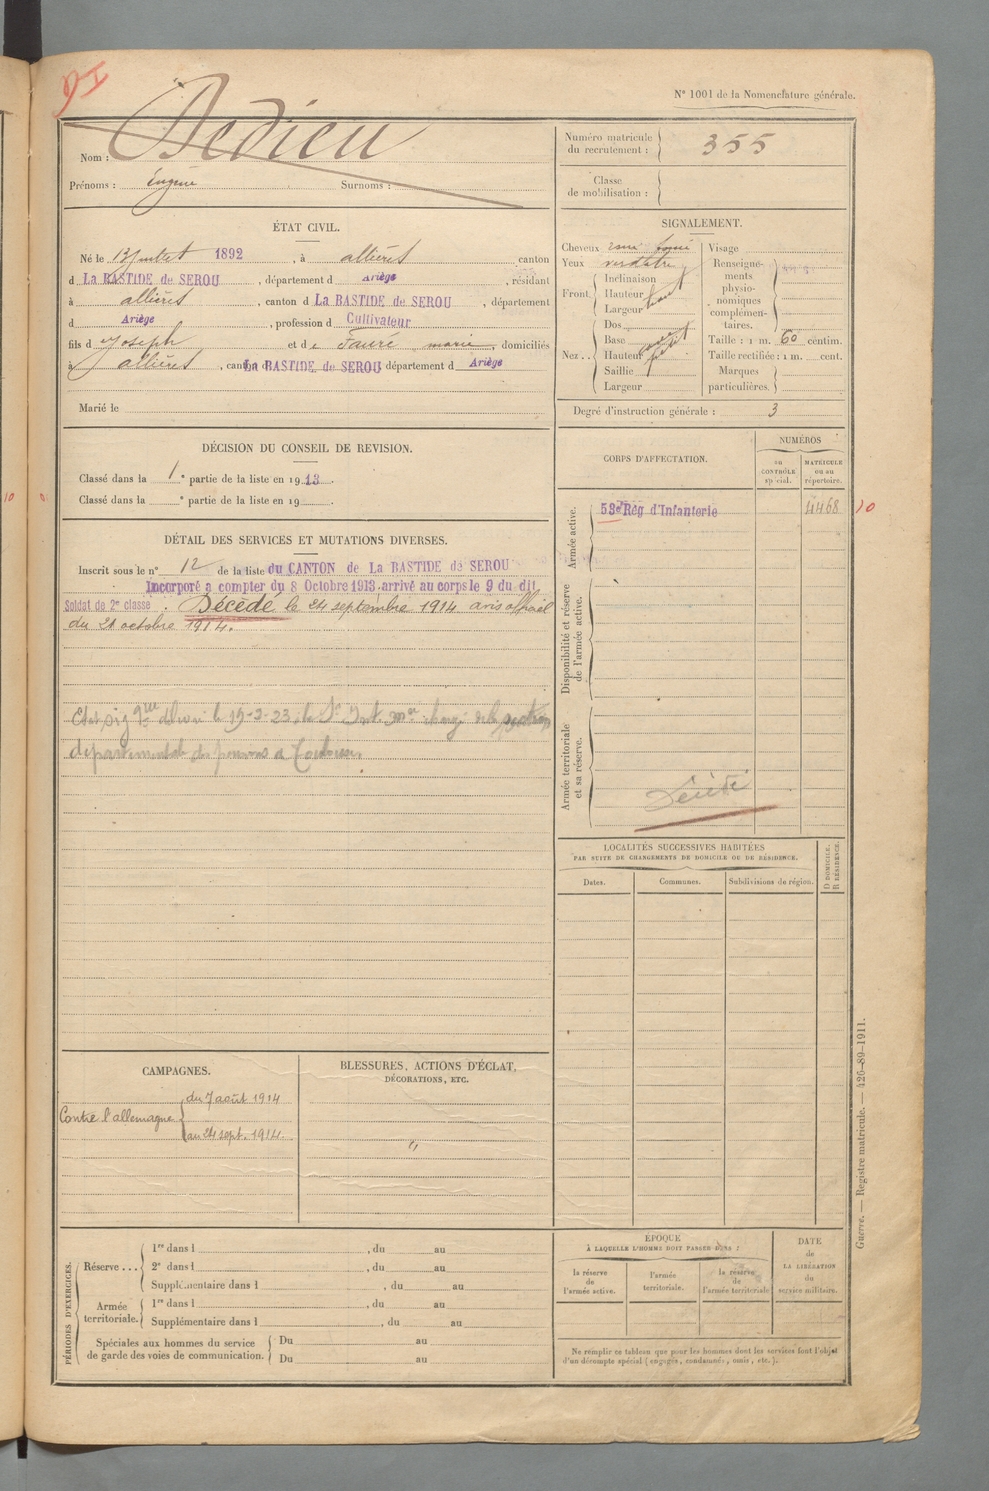 N° 1001 de la Nomenclature générale.
Nom : Dedieu
Prénoms : Eugène Surnoms :
Numéro matricule du recrutement : 355
Classe de mobilisation :
ÉTAT CIVIL.
Né le 13 Juillet 1892, à allières canton
d La BASTIDE de SEROU, département d Ariège, résidant
à allières, canton d La BASTIDE de SEROU, département
d Ariège, profession d Cultivateur
fils d Joseph et de Fauré marie, domiciliés
à allières, canton d La BASTIDE de SEROU département d Ariège
Marié le
SIGNALEMENT.
Cheveux
Yeux verdâtre
Front. Inclinaison
Hauteur
Largeur
Nez Dos
Base
Hauteur
Saillie
Largeur
Visage
Renseignements physionomiques complémentaires.
Taille : 1 m. 60 centim.
Taille rectifiée : 1 m. cent.
Marques particulières.
Degré d'instruction générale : 3
DÉCISION DU CONSEIL DE REVISION.
Classé dans la 1e partie de la liste en 1913.
Classé dans la e partie de la liste en 19 .
DÉTAIL DES SERVICES ET MUTATIONS DIVERSES.
Inscrit sous le n° 12 de la liste du CANTON de La BASTIDE de SEROU
Incorporé a compter du 8 Octobre 1913. arrivé au corps le 9 du dit.
Soldat de 2e classe. Décédé le 24 septembre 1914 avis officiel
du 21 octobre 1914.
le 19-2-23, chargé de la section
départementale des pensions à Toulouse
CORPS D'AFFECTATION.
NUMÉROS
au CONTRÔLE spécial.
MATRICULE ou au répertoire.
Armée active.
53e Rég d'Infanterie 4468
10
Disponibilité et réserve de l'armée active.
Armée territoriale et sa réserve.
Décédé
LOCALITÉS SUCCESSIVES HABITÉES
PAR SUITE DE CHANGEMENTS DE DOMICILE OU DE RÉSIDENCE.
Dates. Communes. Subdivisions de région. D DOMICILE. R RÉSIDENCE.
CAMPAGNES.
Contre l'allemagne du 7 août 1914
au 24 sept. 1914.
BLESSURES, ACTIONS D'ÉCLAT,
DÉCORATIONS, ETC.
"
PÉRIODES D'EXERCICES.
Réserve... 1re dans l , du au
2e dans l , du au
Supplémentaire dans l , du au
Armée territoriale. 1re dans l , du au
Supplémentaire dans l , du au
Spéciales aux hommes du service de garde des voies de communication. Du au
Du au
ÉPOQUE
À LAQUELLE L'HOMME DOIT PASSER DANS :
la réserve de l'armée active.
l'armée territoriale.
la réserve de l'armée territoriale
DATE de LA LIBÉRATION du service militaire.
Ne remplir ce tableau que pour les hommes dont les services font l'objet
d'un décompte spécial (engagés, condamnés, omis, etc.).
Guerre. — Registre matricule. — 426-89-1911.